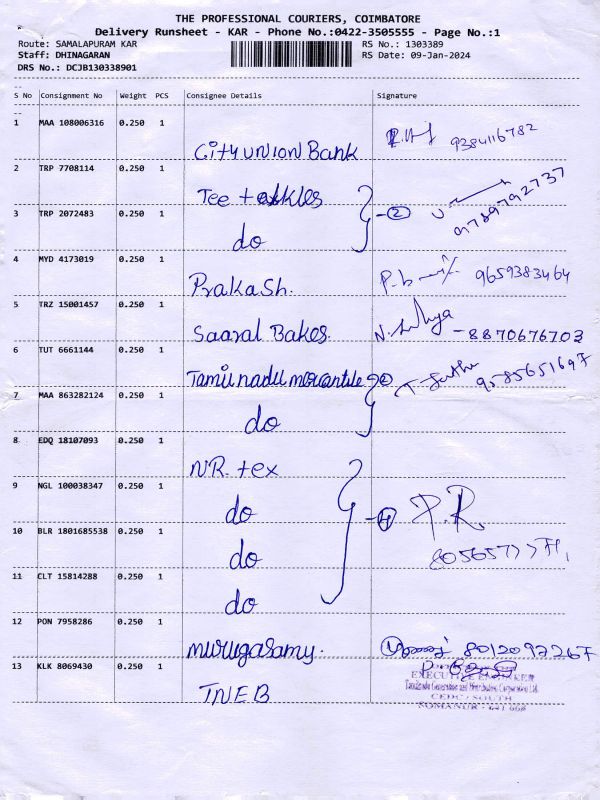 THE PROFESSIONAL COURIERS, COIMBATORE
Delivery Runsheet - KAR - Phone No.:0422-3505555 - Page No.:1
Route: SAMALAPURAM KAR
RS No.: 1303389
Staff: DHINAGARAN
RS Date: 09-Jan-2024
DRS No.: DCJB130338901
S No Consignment No Weight PCS Consignee Details Signature
1 MAA 108006316 0.250 1
City union Bank 9384116782
2 TRP 7708114 0.250 1
Tee
3 TRP 2072483 0.250 1
do 2 9789792737
4 MYD 4173019 0.250 1
Prakash. 9659383464
5 TRZ 15001457 0.250 1
Saaral Bakes. - 8870676703
6 TUT 6661144 0.250 1
Tamilnadu mercantile
7 MAA 863282124 0.250 1
do
8 EDQ 18107093 0.250 1
N.R. tex
9 NGL 100038347 0.250 1
do 4 P.R.
10 BLR 1801685538 0.250 1
do
11 CLT 15814288 0.250 1
do
12 PON 7958286 0.250 1
murugasamy. 8012092267
13 KLK 8069430 0.250 1
TNEB
EXECUTIVE ENGINEER
Tamilnadu Generation and Distribution Corporation Ltd.
SOMANUR - 641 668